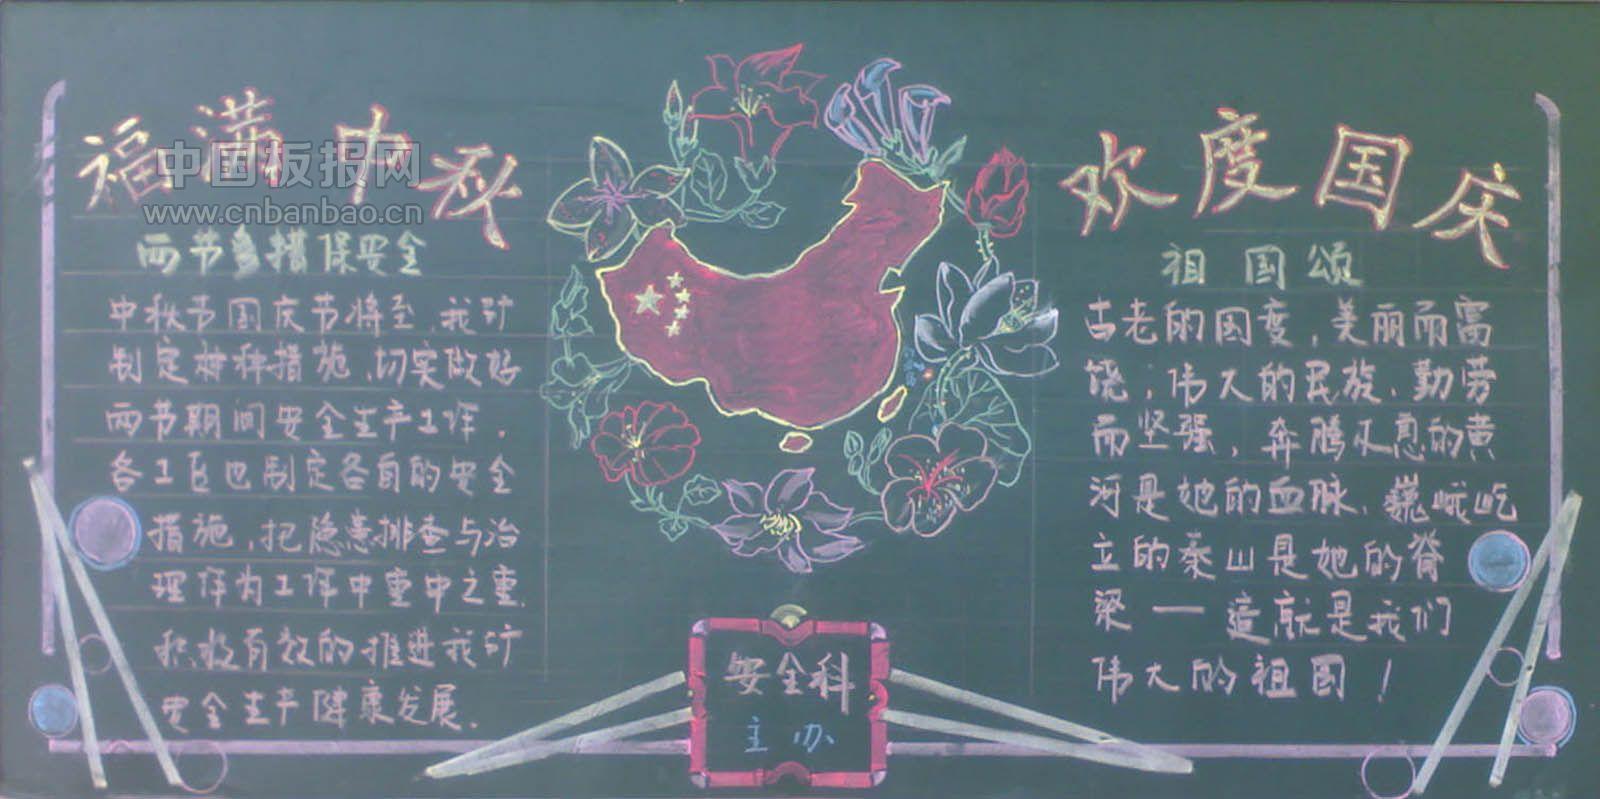 福满中秋
中国板报网
www.cnbanbao.cn
两节多措保安全
中秋节国庆节将至,我矿
制定神种措施,切实做好
两节期间安全生产工作.
各工区也制定各自的安全
措施,把隐患排查与治
理作为工作中重中之重.
积极有效的推进我矿
安全生产健康发展.
安全科
主办
欢度国庆
祖国颂
古老的国度,美丽而富
饶,伟大的民族,勤劳
而坚强,奔腾不息的黄
河是她的血脉,巍峨屹
立的泰山是她的脊
梁一这就是我们
伟大的祖国!